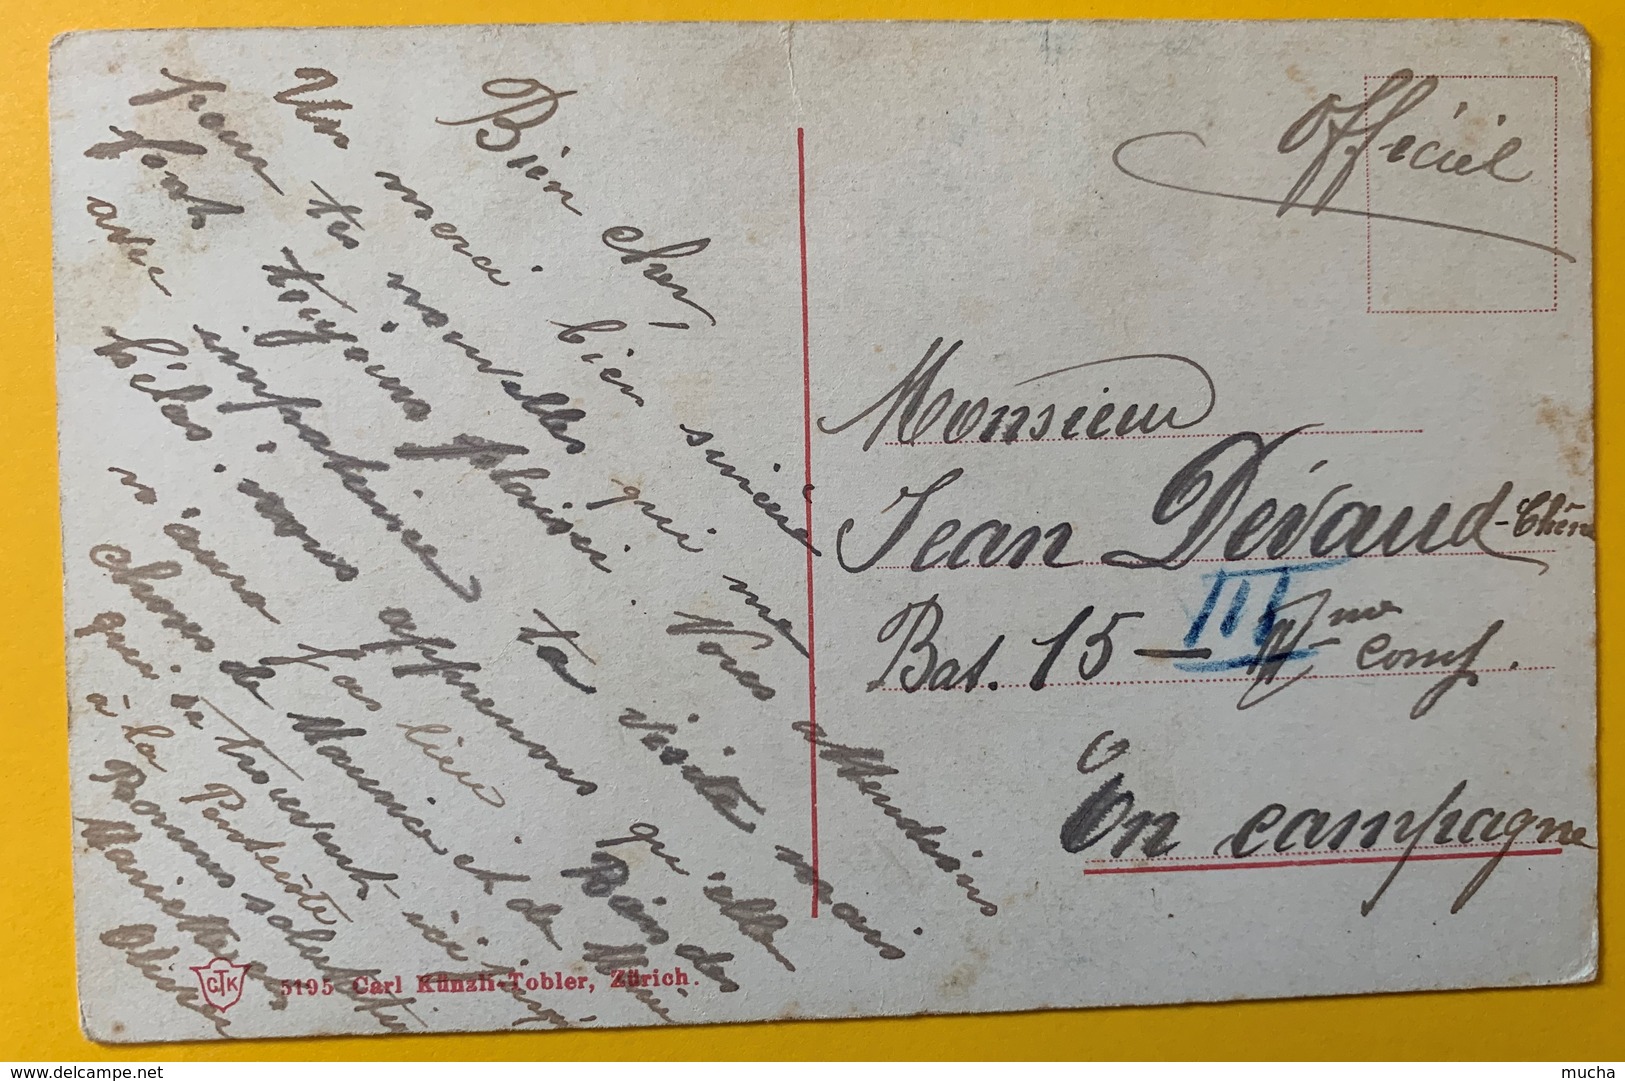 Bien cher,
Un merci bien sincère
pour tes nouvelles qui me
font toujours plaisir. Nous attendions
avec impatience ta visite mais
hélas! nous apprenons qu'elle
n'aura pas lieu. Bien des
choses de Maurice et de Mimi
qui se trouvent ici
à la Pentecôte
Bonnes salutations
Mariette
Olivier
Officiel
Monsieur
Jean Dévaud-Chêne
Bat. 15 - III me comp.
En campagne
CTK 5195 Carl Künzli-Tobler, Zürich.
delcampe.net
mucha